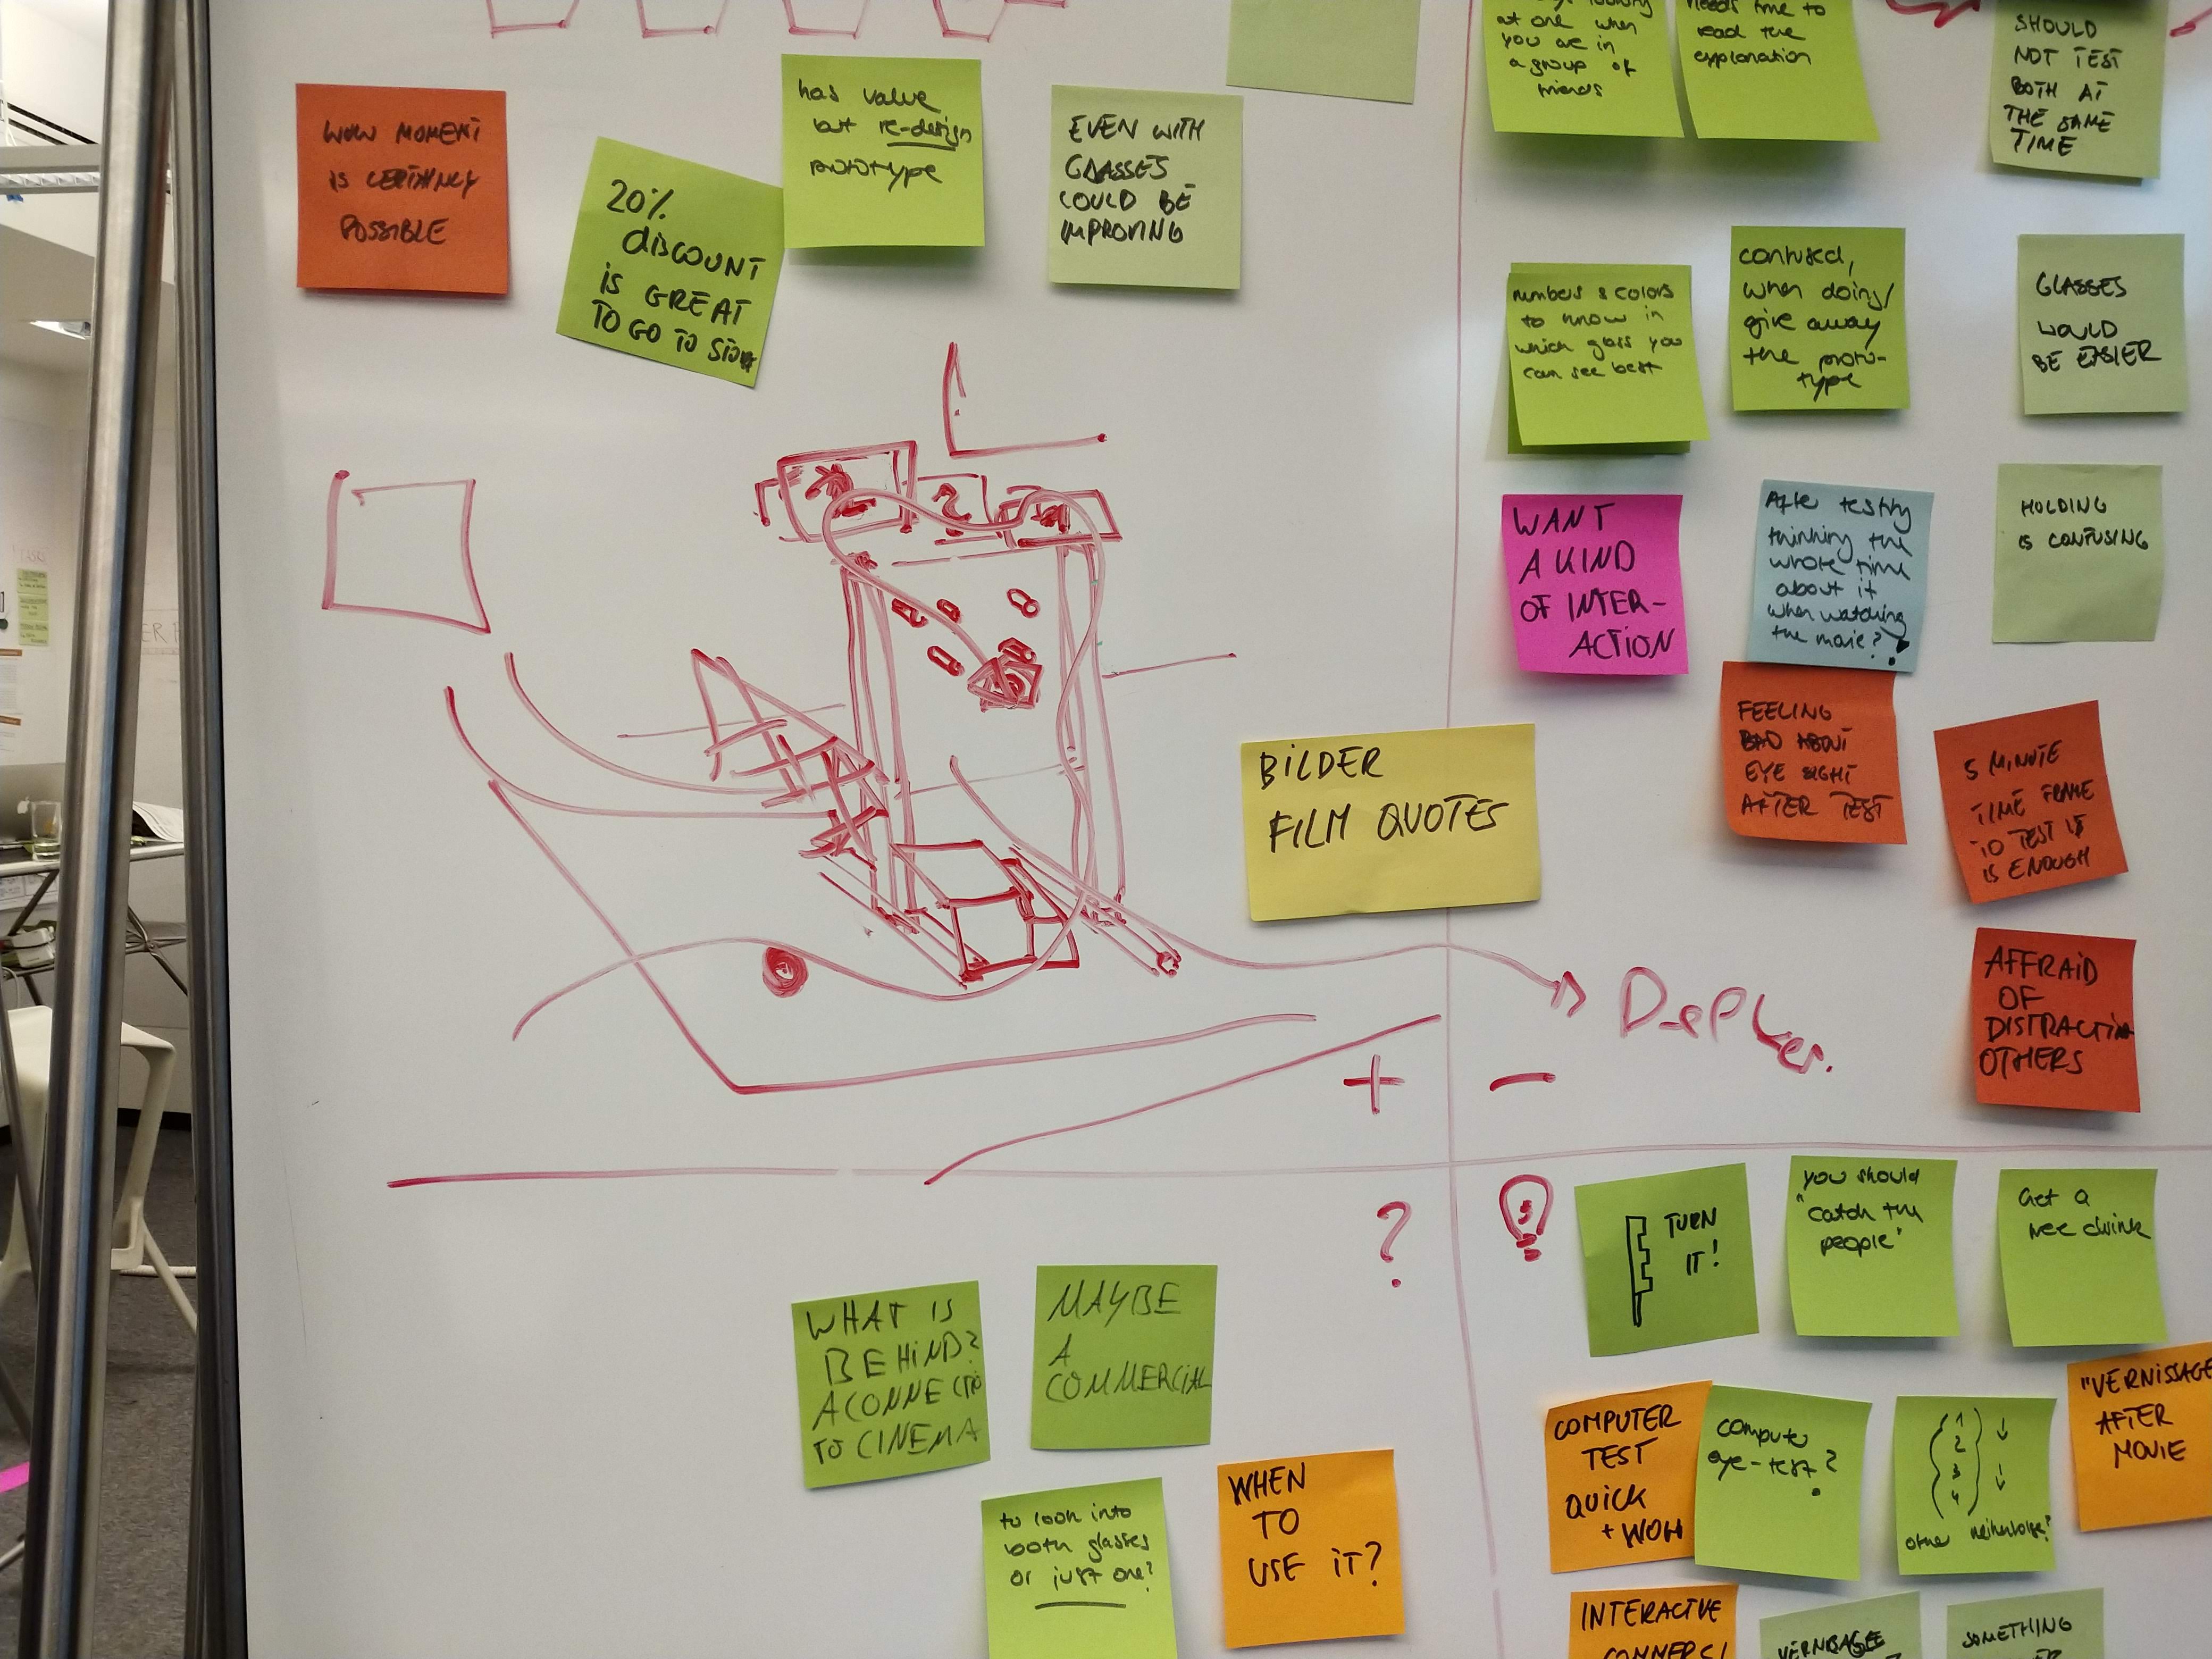 WOW MOMENT
IS CERTAINLY
POSSIBLE
20%
DISCOUNT
IS GREAT
TO GO TO STORE
has value
but re-design
prototype
EVEN WITH
GLASSES
COULD BE
IMPROVING
at one when
you are in
a group of
friends
needs time to
read the
explanation
SHOULD
NOT TEST
BOTH AT
THE SAME
TIME
numbers & colors
to know in
which glass you
can see best
confused,
when doing/
give away
the proto-
type
GLASSES
WOULD
BE EASIER
WANT
A KIND
OF INTER-
ACTION
After testing
thinking the
whole time
about it
when watching
the movie?
HOLDING
IS CONFUSING
FEELING
BAD ABOUT
EYE SIGHT
AFTER TEST
5 MINUTE
TIME FRAME
TO TEST IT
IS ENOUGH
BILDER
FILM QUOTES
AFFRAID
OF
DISTRACTIN
OTHERS
+ −
?
TURN
IT!
you should
"catch the
people"
Get a
free drink
WHAT IS
BEHIND?
A CONNECTIO
TO CINEMA
MAYBE
A
COMMERCIAL
to look into
both glasses
or just one?
WHEN
TO
USE IT?
COMPUTER
TEST
QUICK
+ WOW
computer
eye-test?
1
2
3
4
other
"VERNISSAGE
AFTER
MOVIE
INTERACTIVE
VERNISAGE
SOMETHING